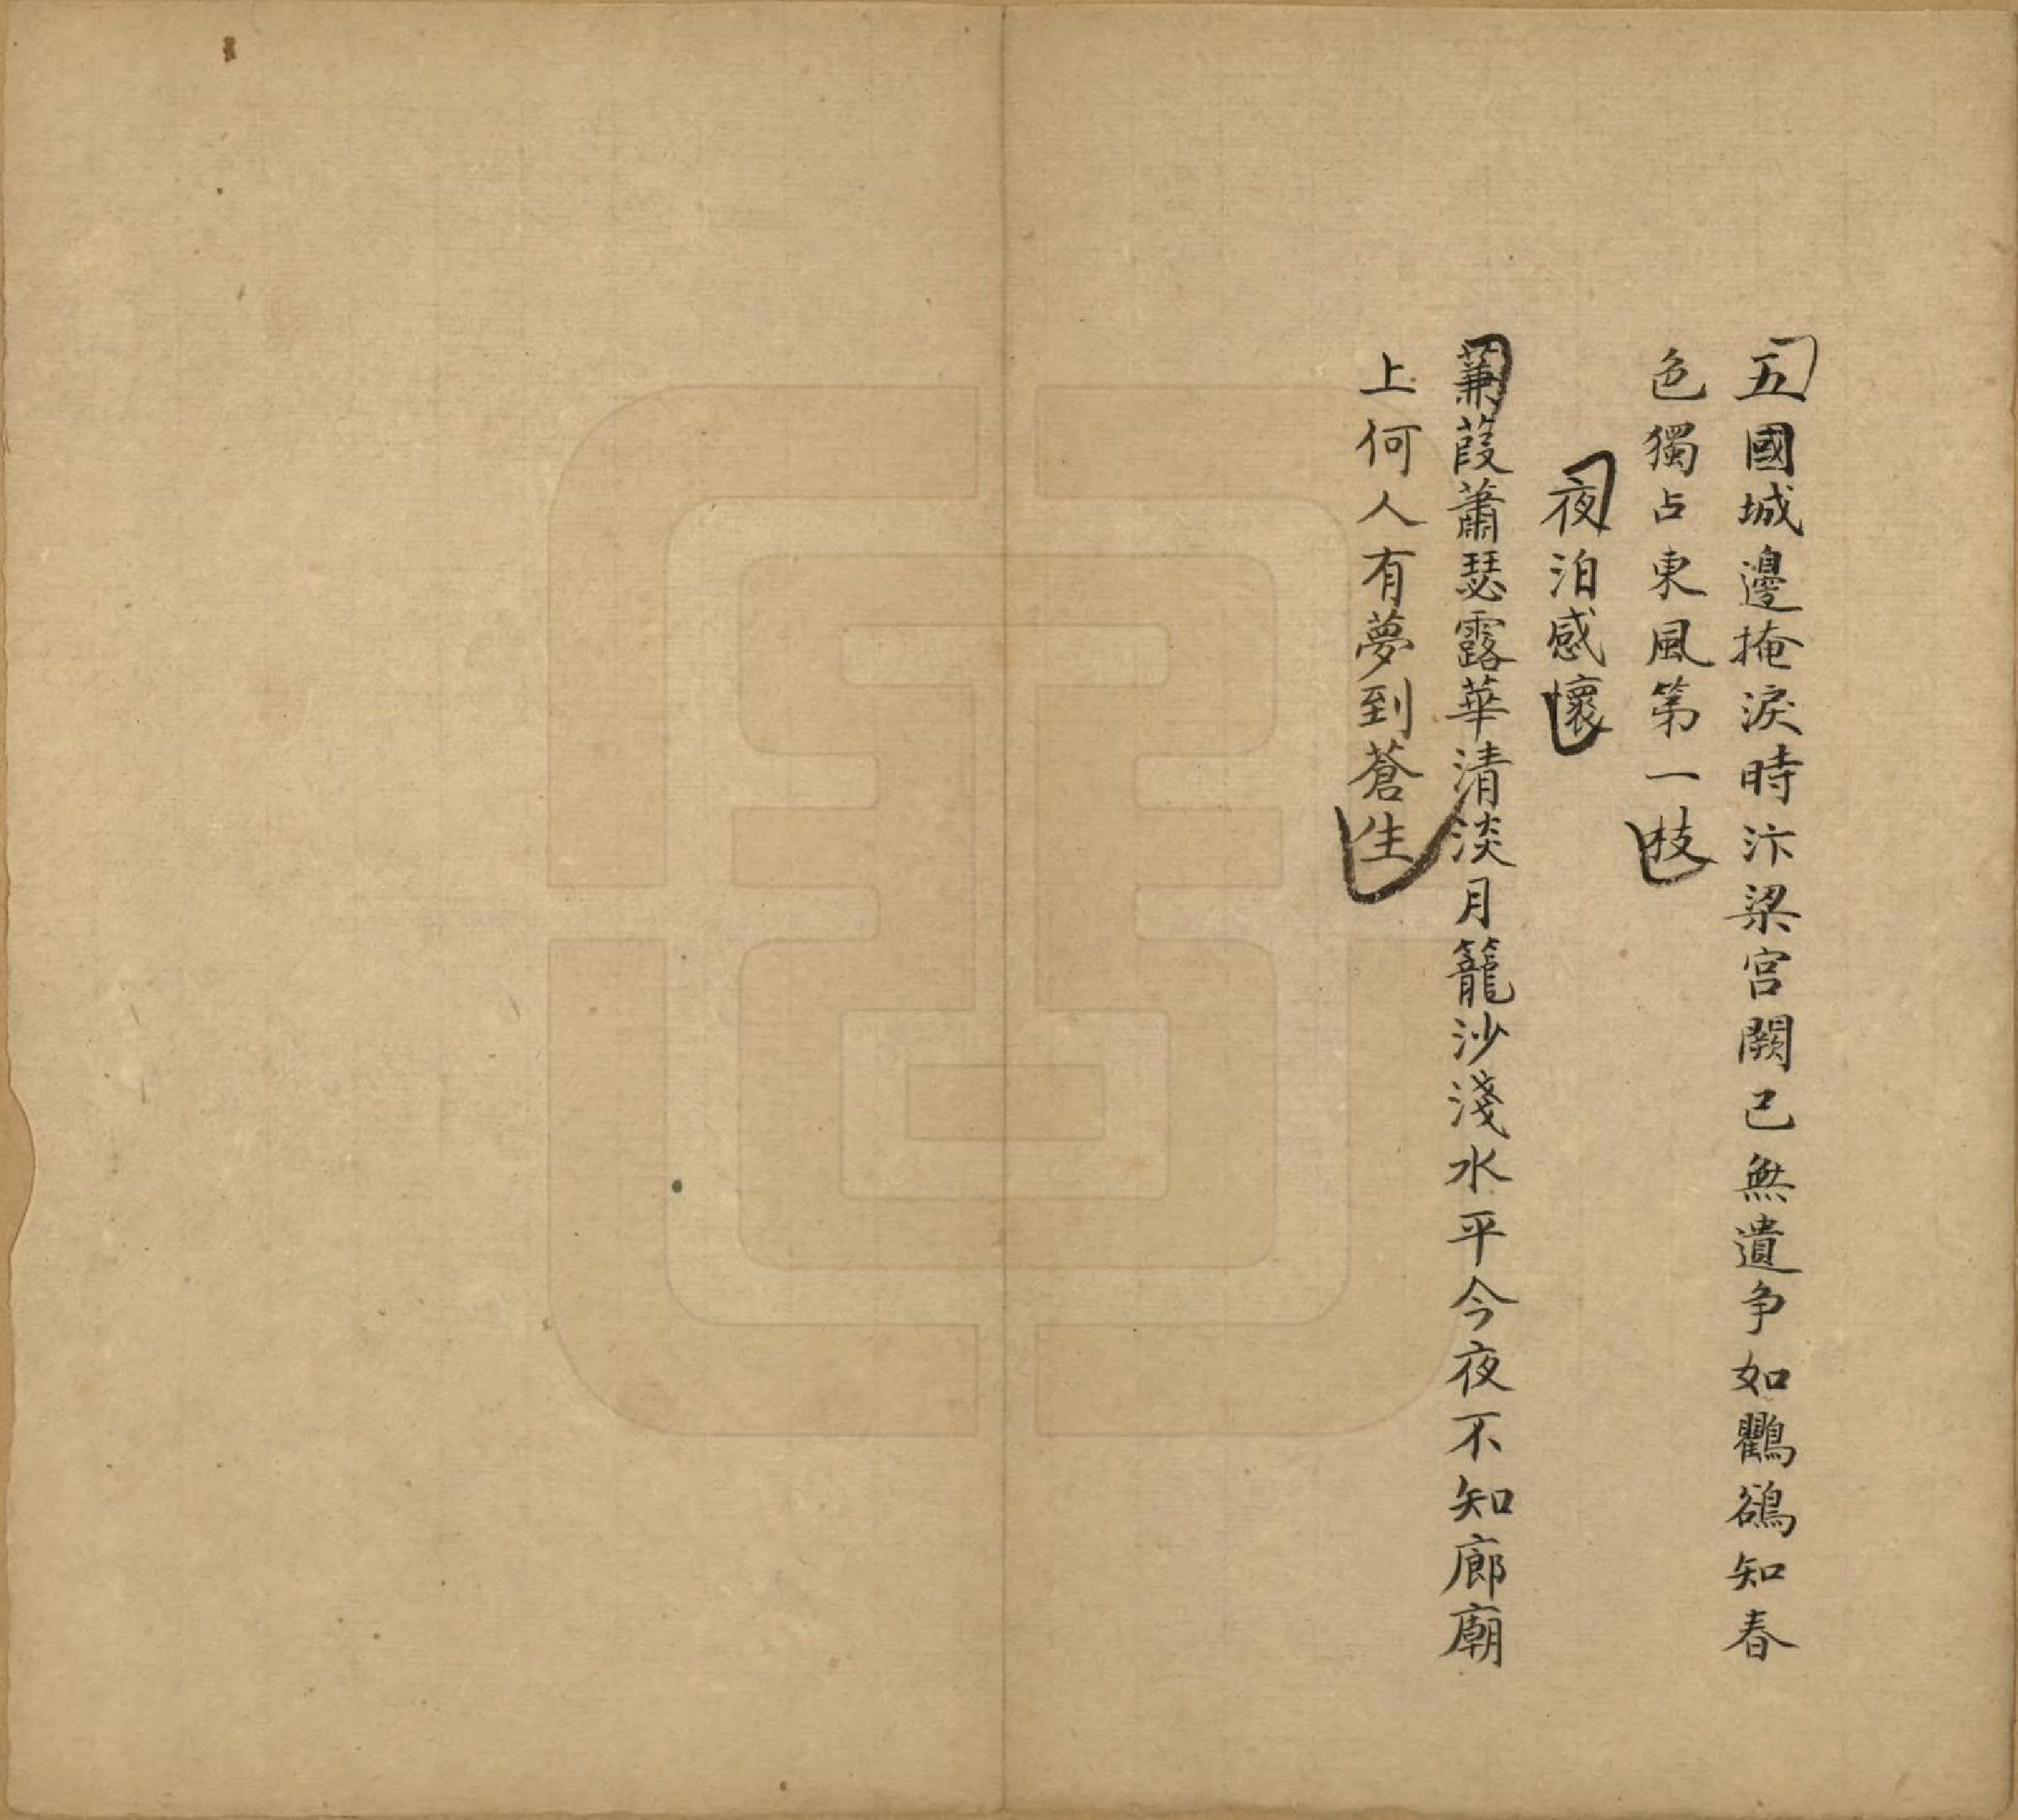 五國城邊掩淚時汴梁宮闕已無遺争如鸜鵒知春
色獨占東風第一枝
夜泊感懷
蒹葭蕭瑟露華清淡月籠沙淺水平今夜不知廊廟
上何人有夢到蒼生